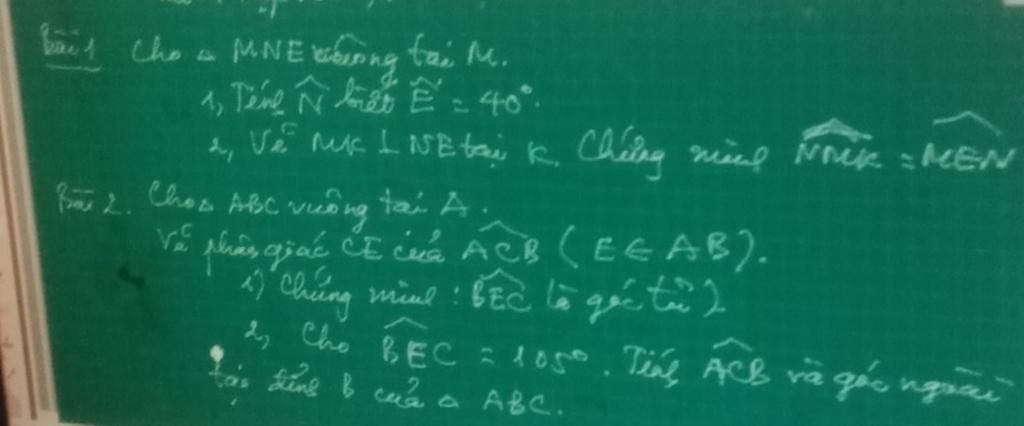 Bài 1 Cho △ MNE vuông tại M.
1, Tính N̂ biết Ê = 40°.
2, Vẽ MK ⊥ NE tại K. Chứng minh \widehat{NMK} = \widehat{MEN}
Bài 2. Cho △ ABC vuông tại A.
Vẽ phân giác CE của \widehat{ACB} ( E ∈ AB ).
1) Chứng minh : \widehat{BEC} là góc tù
2, Cho \widehat{BEC} = 105°. Tính \widehat{ACB} và góc ngoài
tại đỉnh B của △ ABC.